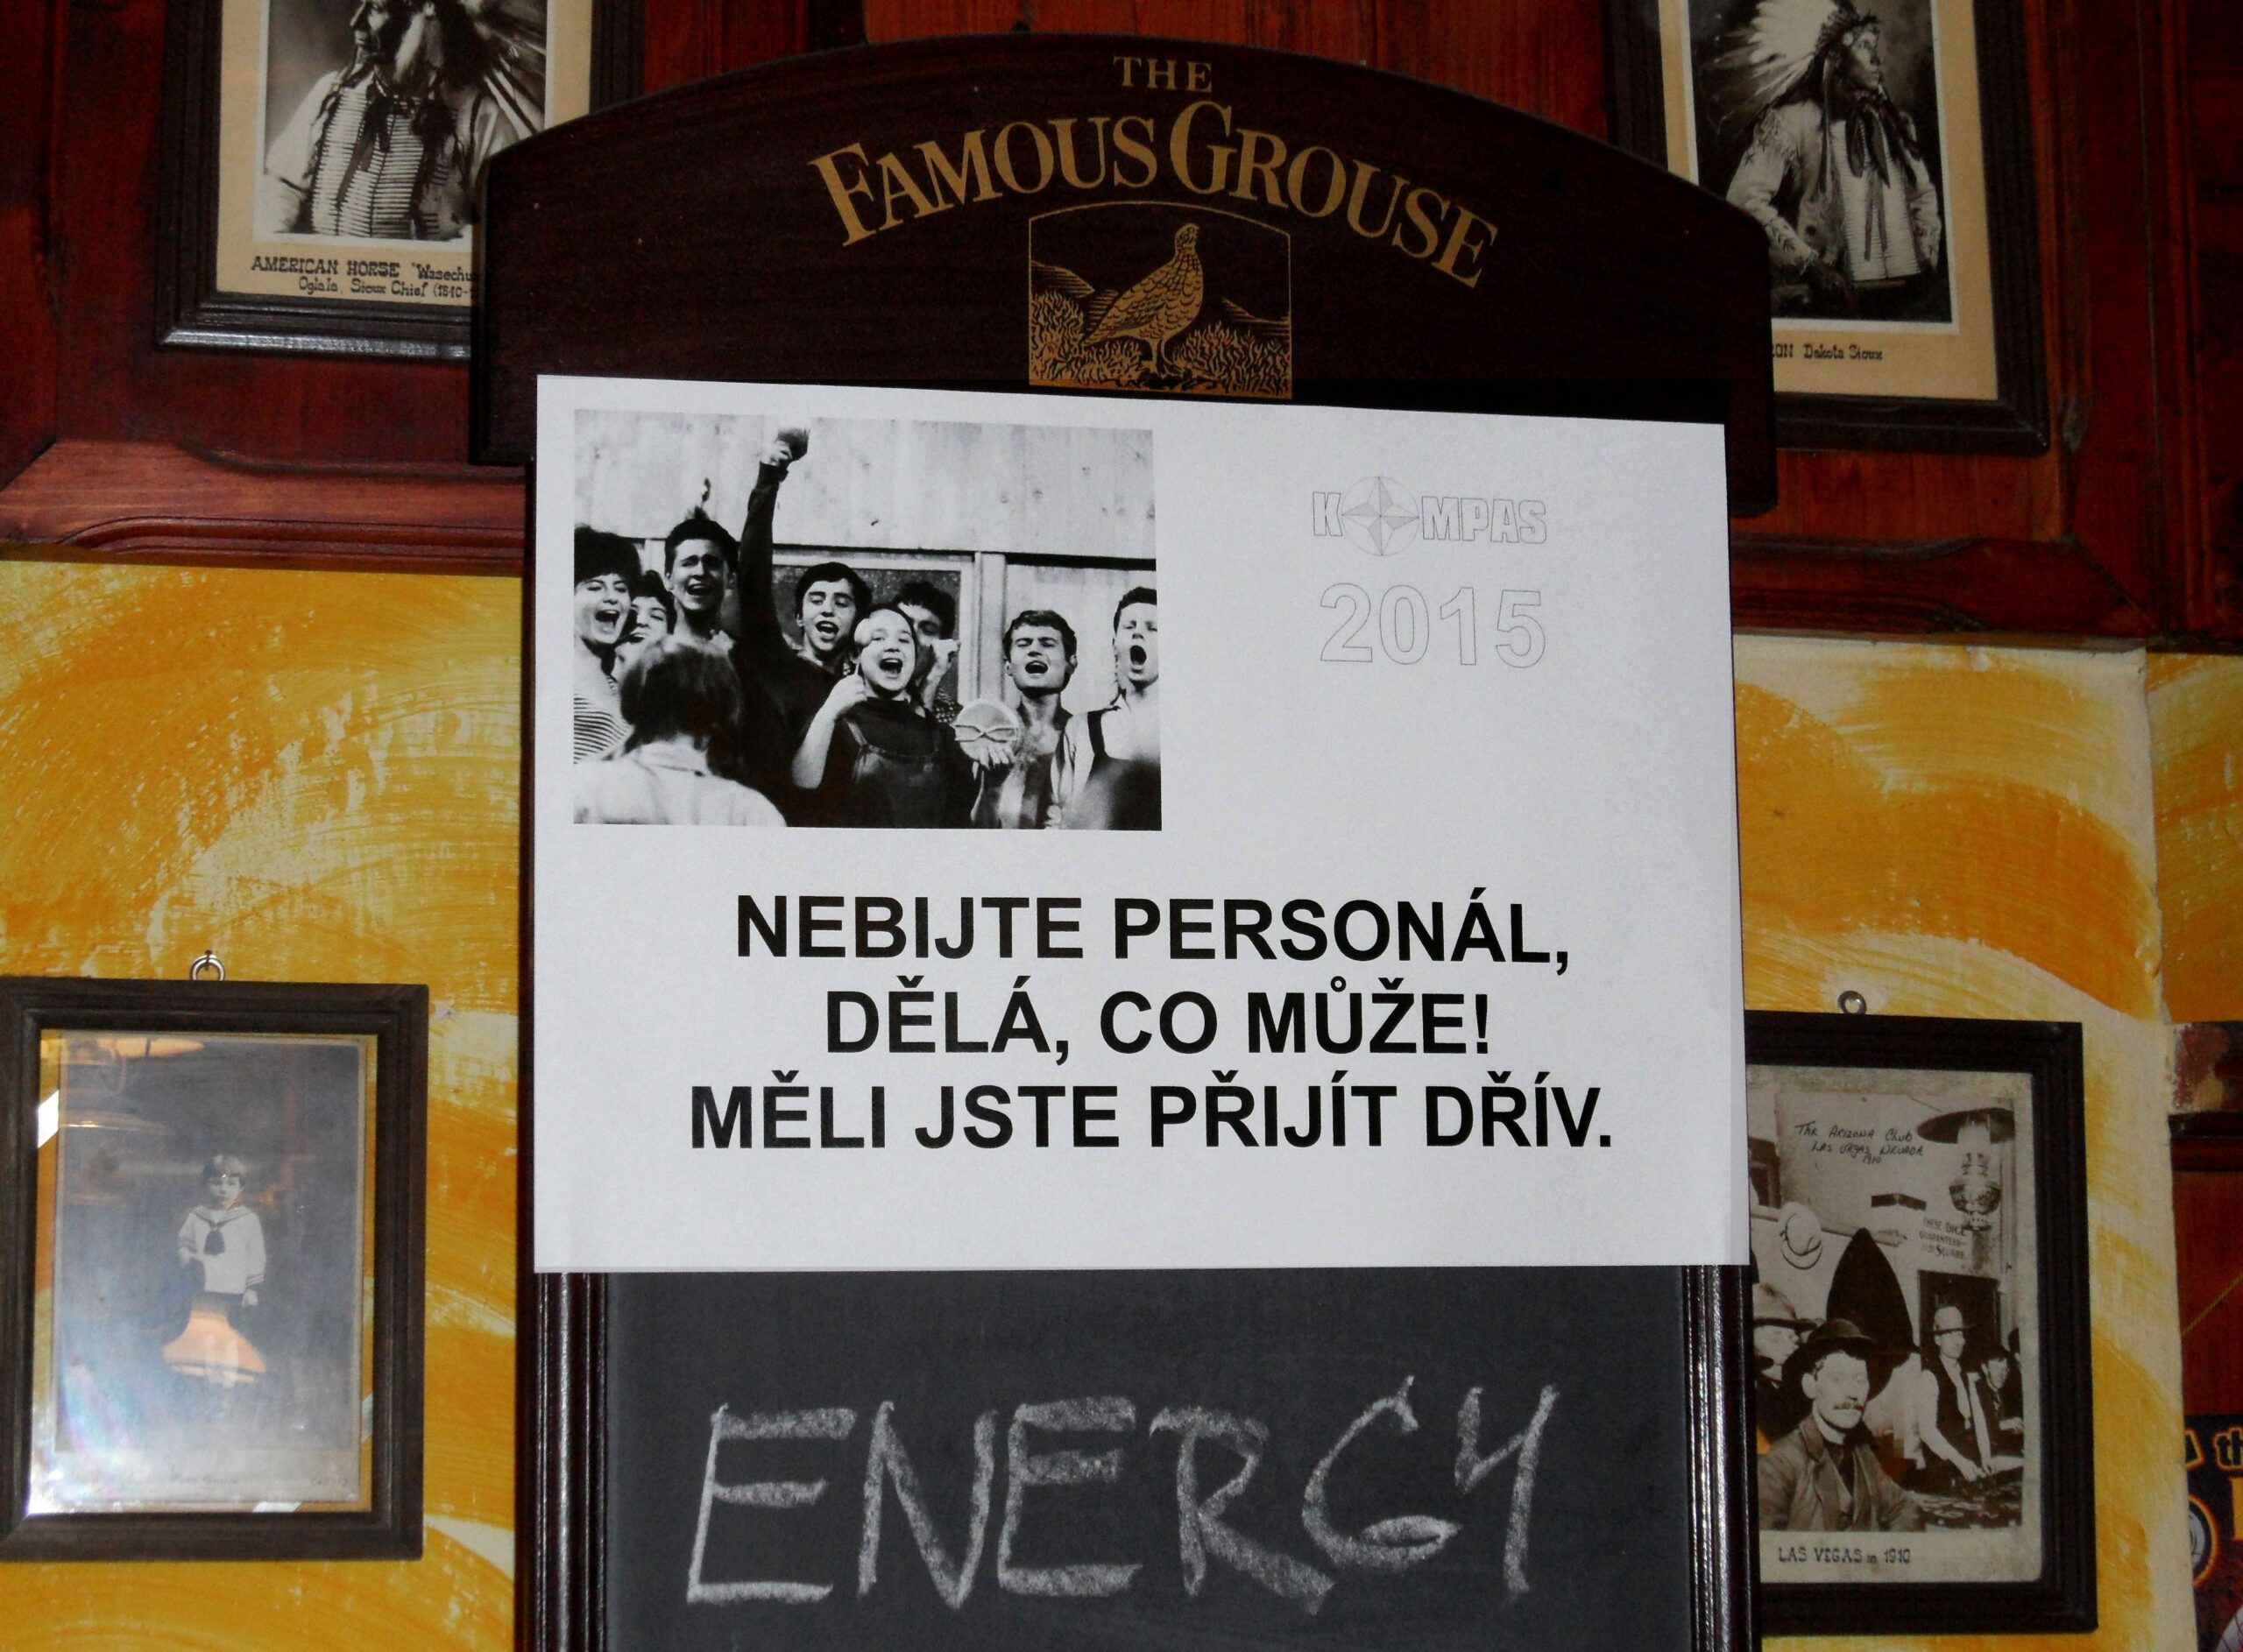 THE
FAMOUS GROUSE
AMERICAN HORSE "Wasechu
Oglala, Sioux Chief (1840-
Dakota Sioux
KOMPAS
2015
NEBIJTE PERSONÁL,
DĚLÁ, CO MŮŽE!
MĚLI JSTE PŘIJÍT DŘÍV.
THE ARIZONA CLUB
LAS VEGAS NEVADA
1910
THESE DICE
GUARANTEED
SQUARE
LAS VEGAS in 1910
ENERGY